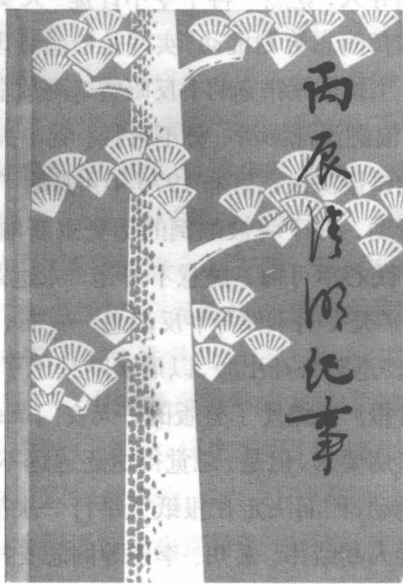 丙辰清明纪事